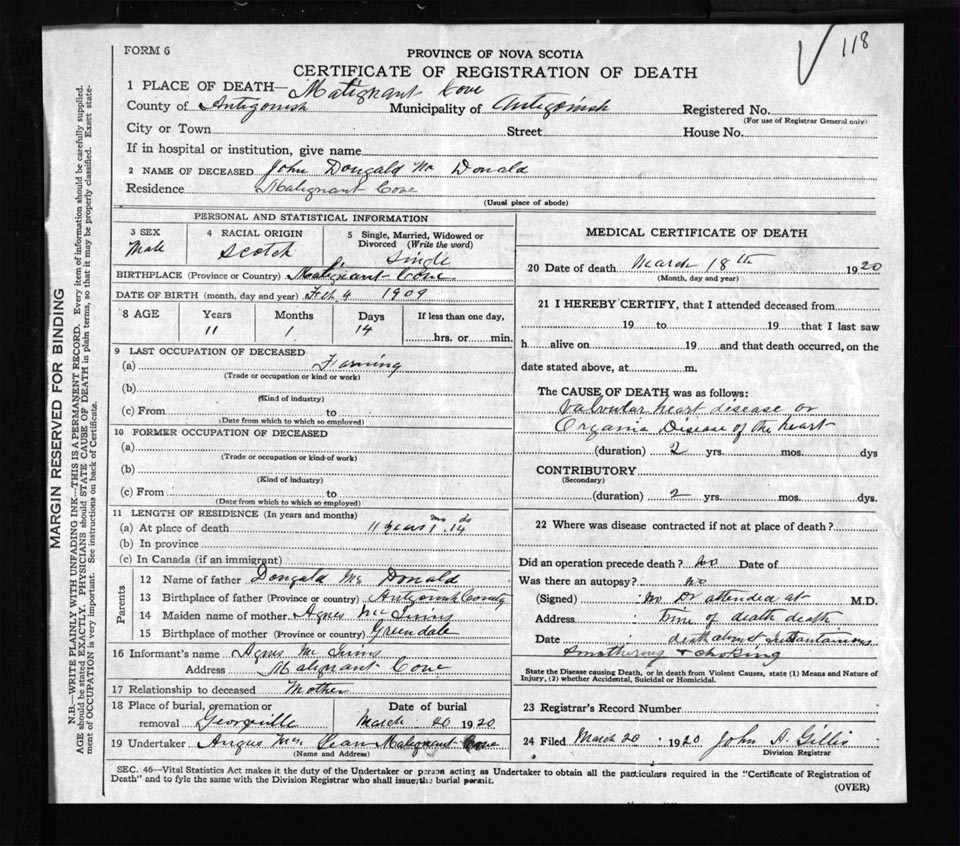 118
FORM 6
PROVINCE OF NOVA SCOTIA
CERTIFICATE OF REGISTRATION OF DEATH
1 PLACE OF DEATH— Malignant Cove
County of Antigonish Municipality of Antigonish Registered No.
(For use of Registrar General only)
City or Town Street House No.
If in hospital or institution, give name
2 NAME OF DECEASED John Dougald Mc Donald
Residence Malignant Cove
(Usual place of abode)
PERSONAL AND STATISTICAL INFORMATION
3 SEX Male
4 RACIAL ORIGIN Scotch
5 Single, Married, Widowed or Divorced (Write the word) Single
BIRTHPLACE (Province or Country) Malignant Cove
DATE OF BIRTH (month, day and year) Feb 4 1909
8 AGE Years Months Days If less than one day,
11 1 14 hrs. or min.
9 LAST OCCUPATION OF DECEASED
(a) Farming
(Trade or occupation or kind or work)
(b)
(Kind of industry)
(c) From to
(Date from which to which so employed)
10 FORMER OCCUPATION OF DECEASED
(a)
(Trade or occupation or kind of work)
(b)
(Kind of industry)
(c) From to
(Date from which to which so employed)
11 LENGTH OF RESIDENCE (In years and months)
(a) At place of death 11 years 1 mo 14 ds
(b) In province
(c) In Canada (if an immigrant)
Parents
12 Name of father Dougald Mc Donald
13 Birthplace of father (Province or country) Antigonish County
14 Maiden name of mother Agnes Mc Innis
15 Birthplace of mother (Province or country) Greendale
16 Informant's name Agnes Mc Innis
Address Malignant Cove
17 Relationship to deceased Mother
18 Place of burial, cremation or removal Georgville
Date of burial March 20 1920
19 Undertaker Angus Mc Lean Malignant Cove
(Name and Address)
MEDICAL CERTIFICATE OF DEATH
20 Date of death March 18th 1920
(Month, day and year)
21 I HEREBY CERTIFY, that I attended deceased from
19 to 19 that I last saw
h alive on 19 and that death occurred, on the
date stated above, at m.
The CAUSE OF DEATH was as follows:
Valvular heart disease or
Organic Disease of the heart
(duration) 2 yrs. mos. dys
CONTRIBUTORY
(Secondary)
(duration) 2 yrs. mos. dys.
22 Where was disease contracted if not at place of death?
Did an operation precede death? No Date of
Was there an autopsy? no
(Signed) No Dr attended at M.D.
Address Time of death death
Date death almost instantanious
Smothering & choking
State the Disease causing Death, or in death from Violent Causes, state (1) Means and Nature of
Injury, (2) whether Accidental, Suicidal or Homicidal.
23 Registrar's Record Number
24 Filed March 20 1920 John A. Gillis
Division Registrar
SEC. 46—Vital Statistics Act makes it the duty of the Undertaker or person acting as Undertaker to obtain all the particulars required in the "Certificate of Registration of
Death" and to fyle the same with the Division Registrar who shall issue the burial permit.
(OVER)
MARGIN RESERVED FOR BINDING
N.B.—WRITE PLAINLY WITH UNFADING INK—THIS IS A PERMANENT RECORD. Every item of information should be carefully supplied.
AGE should be stated EXACTLY. PHYSICIANS should STATE CAUSE OF DEATH in plain terms, so that it may be properly classified. Exact state-
ment of OCCUPATION is very important. See instructions on back of Certificate.